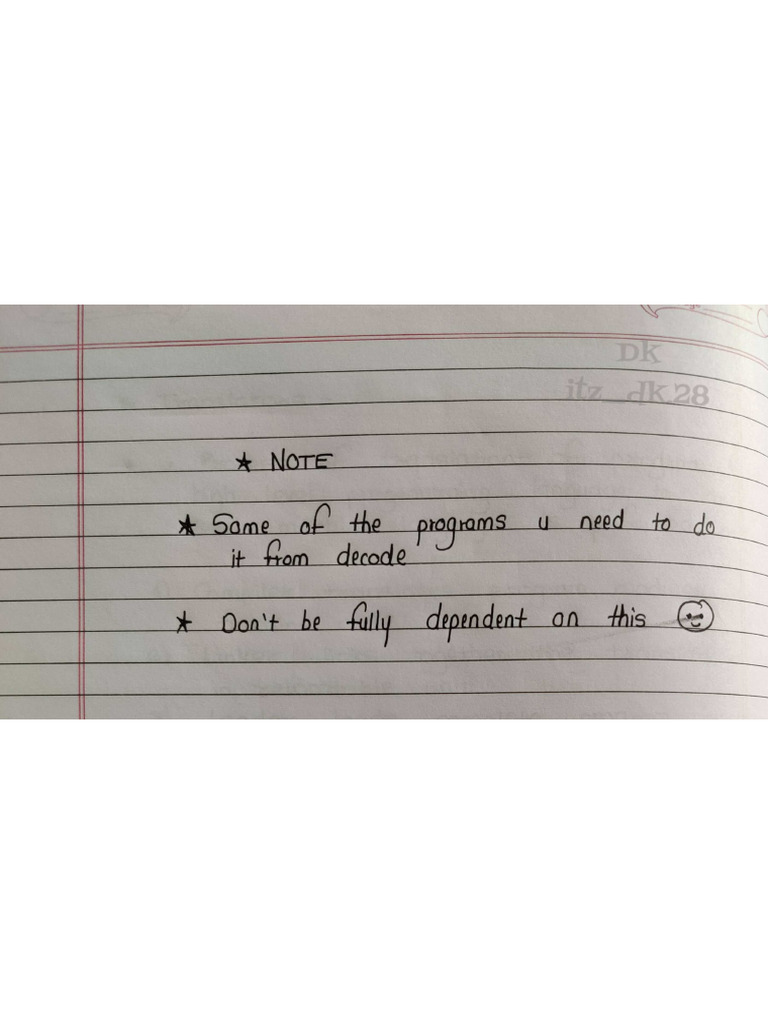 Dk
itz_dk28
★ NOTE
★ Some of the programs u need to do
it from decode
★ Don't be fully dependent on this